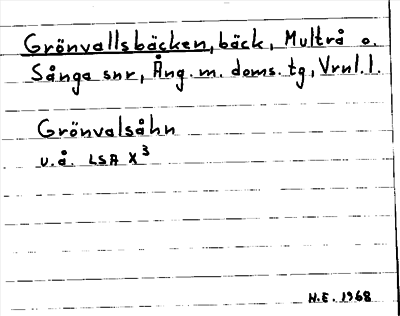 Grönvallsbäcken, bäck, Multrå o.
Sånga snr, Ång. m. doms. tg, Vrnl. l.
Grönvalsåhn
u.å. LSA X³
N.E. 1968